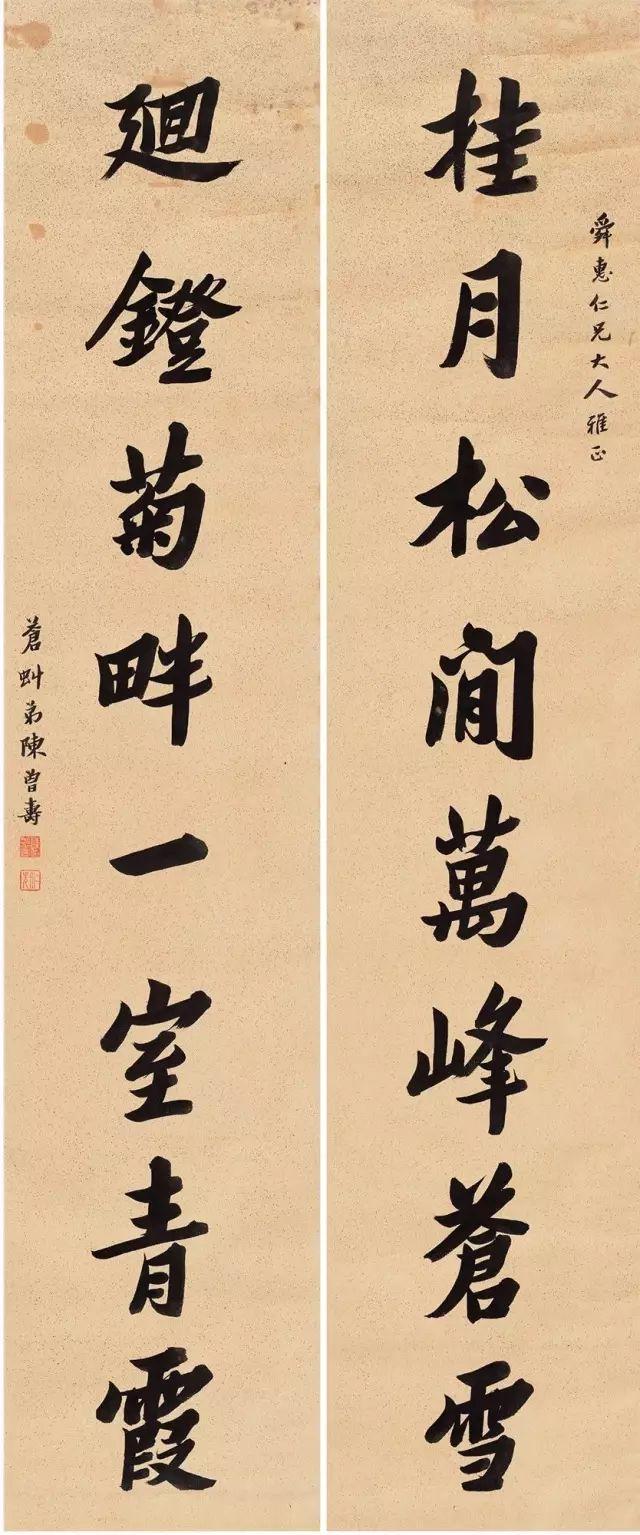 舜惠仁兄大人雅正
挂月松間萬峰蒼雪
廻鐙菊畔一室青霞
蒼虯弟陳曾壽